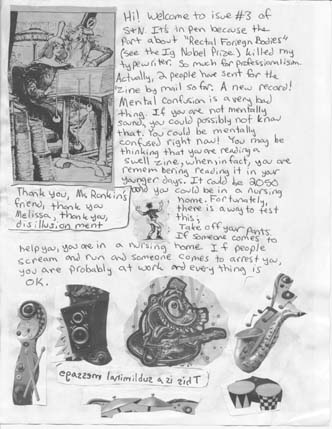 Hi! Welcome to issue #3 of
S+N. It's in pen because the
part about "Rectal Foreign Bodies"
(see the Ig Nobel Prize) killed my
typewriter. So much for professionalism.
Actually, 2 people have sent for the
zine by mail so far. A new record!
Mental confusion is a very bad
thing. If you are not mentally
sound, you could possibly not know
that. You could be mentally
confused right now! You may be
thinking that you are reading a
swell zine, when in fact, you are
remembering reading it in your
younger days. It could be 2050
and you could be in a nursing
home. Fortunatly,
there is a way to test
this;
Take off your pants.
If someone comes to
help you, you are in a nursing home. If people
scream and run and someone comes to arrest you,
you are probably at work and everything is
OK.
Thank you, Mr. Rankin's
friend, thank you
Melissa, thank you,
disillusionment
This is a subliminal message